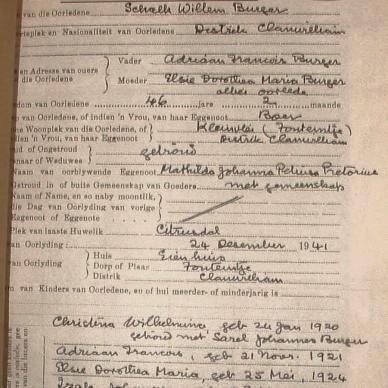 van die Oorledene Schalk Willem Burger
en Nasionaliteit van Oorledene Distrik Clanwilliam
Vader Adriaan Francois Burger
en Adresse van ouers
die Oorledene
Moeder Elsie Dorothea Maria Burger
albei oorlede
van Oorledene 46 jare 2 maande
van Oorledene, of indien 'n Vrou, van haar Eggenoot Boer
Woonplek van die Oorledene, of Kleinvlei (Fonteintjie)
indien 'n Vrou, van haar Eggenoot Distrik Clanwilliam
of Ongetroud getroud
of Weduwee
Naam van oorblywende Eggenoot Mathilda Johanna Petrusa Pretorius
Getroud in of buite Gemeenskap van Goedere met gemeenskap
Naam of Name, en so naby moontlik,
die Dag van Oorlyding van vorige
Eggenoot of Eggenote
Plek van laaste Huwelik Citrusdal
van Oorlyding 24 Desember 1941
Huis Eien huis
van Oorlyding Dorp of Plaas Fonteintjie
Distrik Clanwilliam
van Kinders van Oorledene, en of hul meerder- of minderjarig is
Christina Wilhelmina, geb 24 Jan 1920
getroud met Sarel Johannes Burger
Adriaan Francois, geb 21 Novr. 1921
Elsie Dorothea Maria, geb 25 Mei, 1924